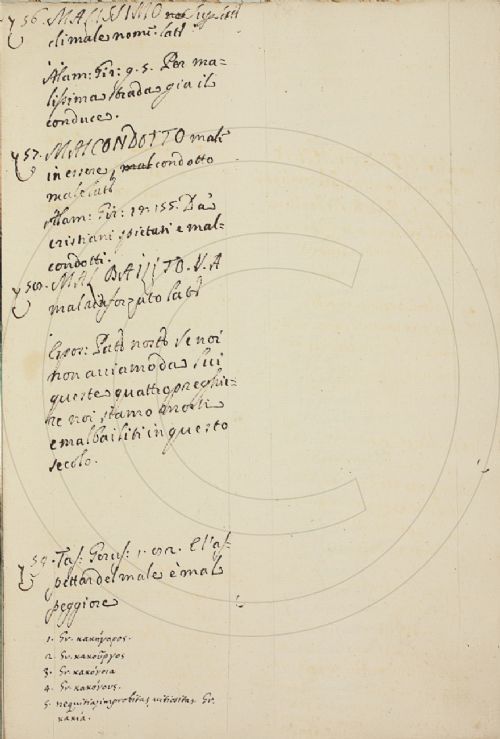 56. MALISSIMO
di male nomi. lat:
Alam: Gir: 9. 5. Per ma=
lissima strada gia il
conduce.
57. MALCONDOTTO mal
in essere, mal condotto
male lat:
Alam: Gir: 155. Da
cristiani spietati e mal-
condotti.
58. MAL BAILITO. V. A
mal rinforzato lat:
Espos: Pat: nost: Se noi
non acciamo da lui
queste quattro preghie=
re noi siamo morti
e malbailiti in questo
secolo.
59. Tass: Gerus: 1. E l'as-
pettar del male è mal
peggiore
1. Gr. κακήγορος.
2. Gr. κακοῦργος
3. Gr. κακόνοια
4. Gr. κακόνους.
5. nequitia, improbitas, vitiositas Gr.
κακία.